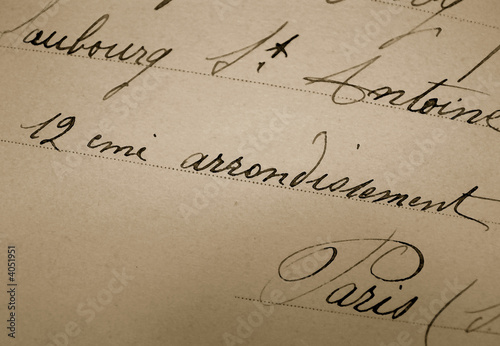 Faubourg St Antoine
12 eme arrondissement
Paris (